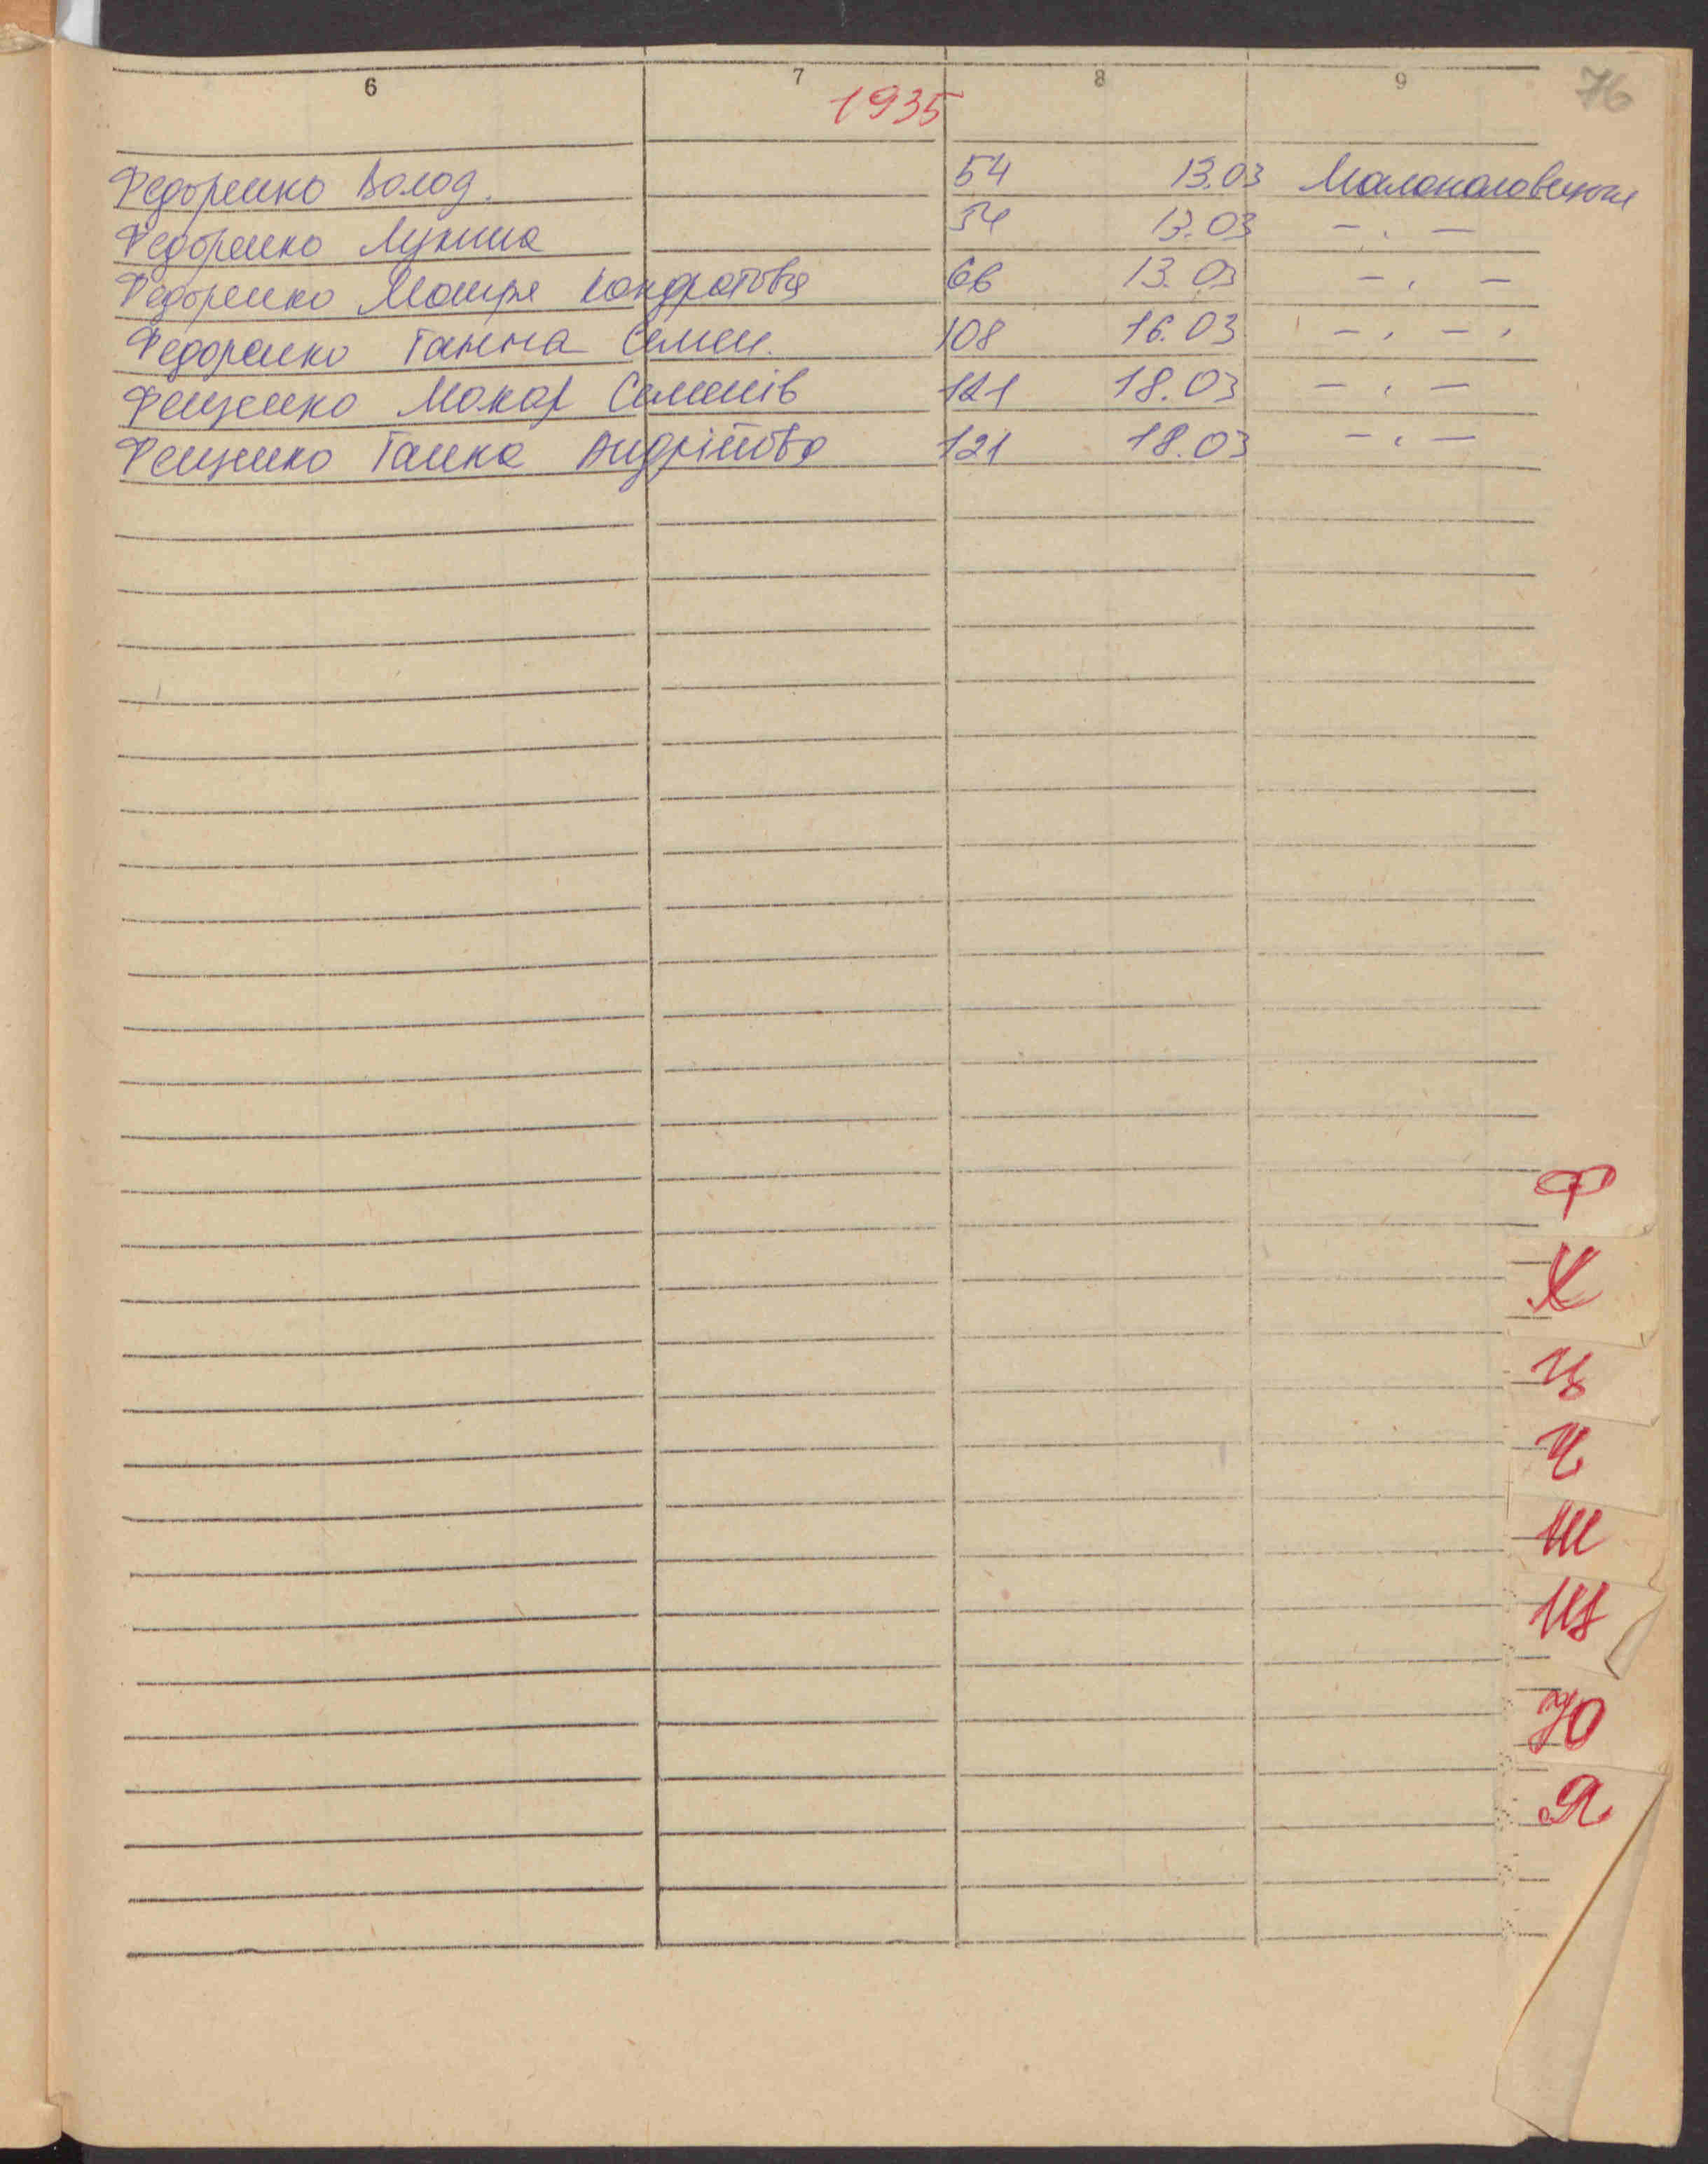 6 7 8 9 76
1935
Федоренко Волод. 54 13.03
Федоренко Лукина 54 13.03 - " -
Федоренко Мотря Кондратова 66 13.03 - " -
Федоренко Ганна Семен. 108 16.03 - " -
Фещенко Макар Семенів 121 18.03 - " -
Фещенко Ганна Андріївна 121 18.03 - " -
Ф
Х
Ц
Ч
Ш
Щ
Ю
Я